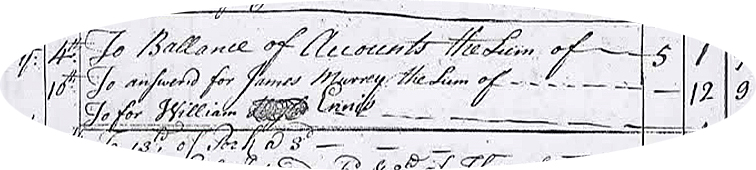 4th To Ballance of Accounts the Sum of — 5 1
10th To answerd for James Murrey the Sum of — 12 9
To for William Ennis
13 lb of Pork a 3d